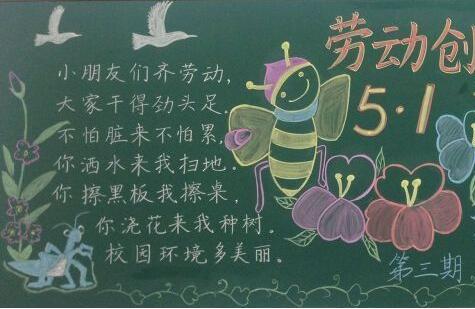 劳动创
5·1
小朋友们齐劳动，
大家干得劲头足，
不怕脏来不怕累，
你洒水来我扫地。
你擦黑板我擦桌，
你浇花来我种树。
校园环境多美丽。
第三期